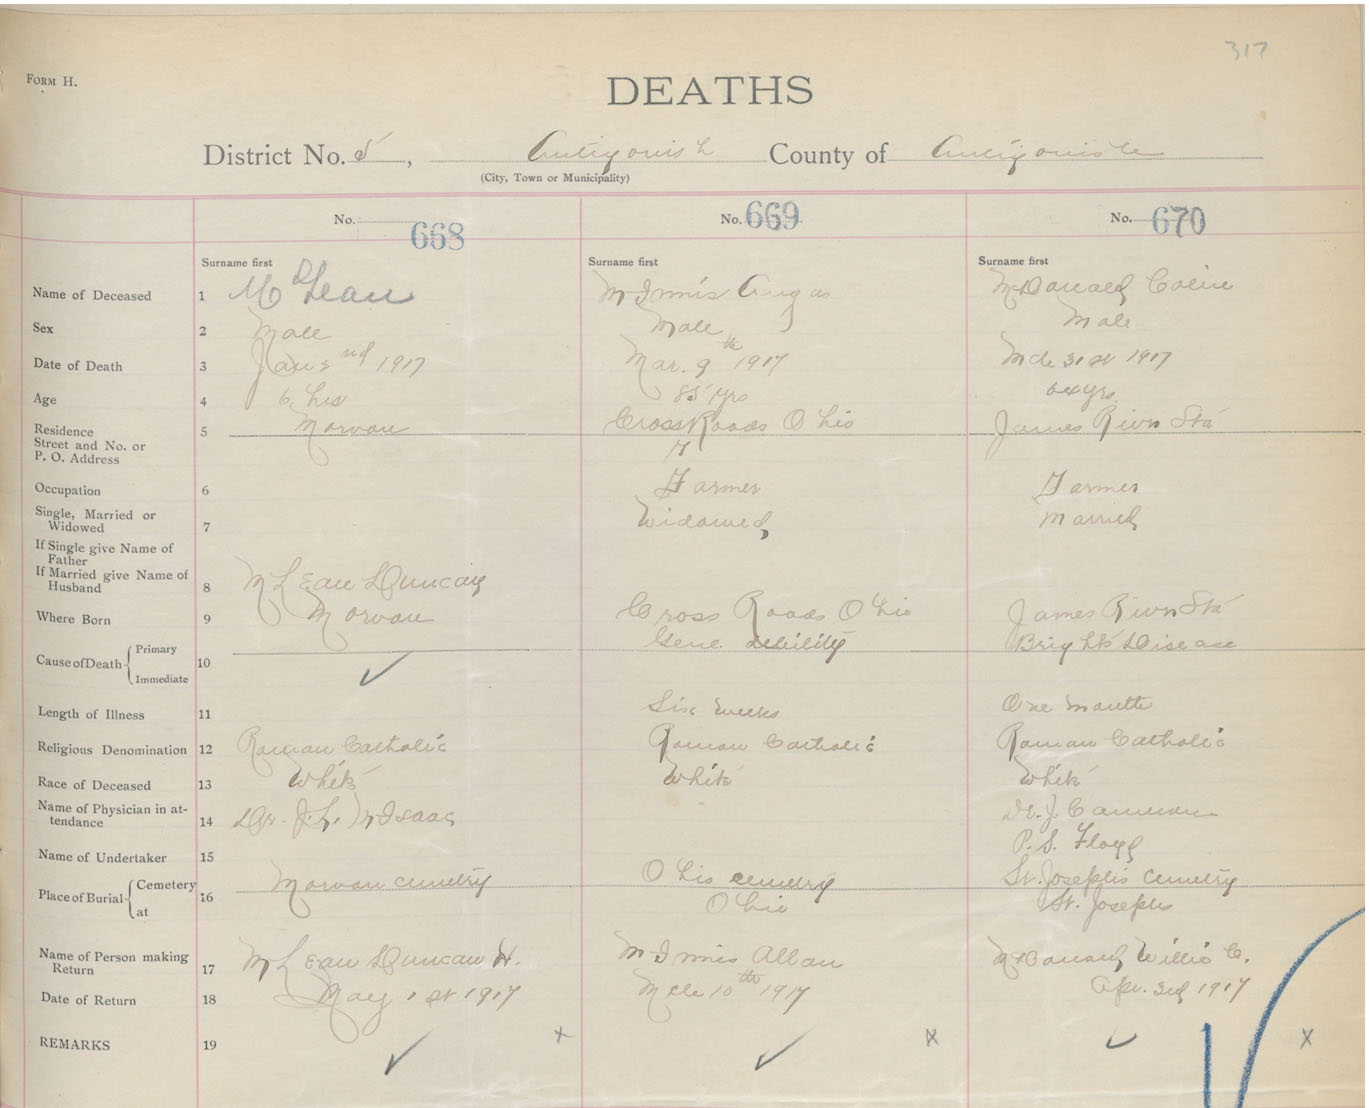 317
FORM H.
DEATHS
District No. 5, Antigonish County of Antigonish
(City, Town or Municipality)
No. 668 No. 669 No. 670
Surname first Surname first Surname first
Name of Deceased 1 McLean McInnis Angus McDonald Colin
Sex 2 Male Male Male
Date of Death 3 Jan 2nd 1917 Mar. 9th 1917 Mch 31st 1917
Age 4 6 hrs 85 yrs yrs
Residence Street and No. or P. O. Address 5 Morvan Cross Roads Ohio James River Sta
Occupation 6 Farmer Farmer
Single, Married or Widowed 7 Widowed Married
If Single give Name of Father
If Married give Name of Husband 8 McLean Duncan
Where Born 9 Morvan Cross Roads Ohio James River Sta
Cause of Death Primary Immediate 10 Genl. debility Brights Disease
Length of Illness 11 Six weeks One month
Religious Denomination 12 Roman Catholic Roman Catholic Roman Catholic
Race of Deceased 13 White White White
Name of Physician in attendance 14 Dr. J. L. McIsaac Dr. J. Cameron
Name of Undertaker 15 P. S. Floyd
Place of Burial Cemetery at 16 Morvan cemetry Ohio cemetry St. Joseph's Cemetry
Ohio St. Josephs
Name of Person making Return 17 McLean Duncan H. McInnis Allan McDonald Willie C.
Date of Return 18 May 1st 1917 Mch 10th 1917 Apr. 3rd 1917
REMARKS 19 x x x